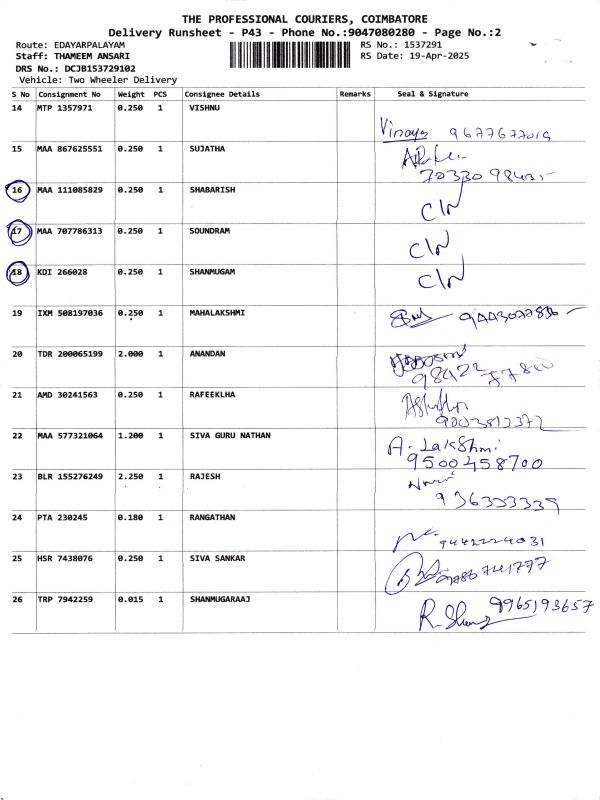 THE PROFESSIONAL COURIERS, COIMBATORE
Delivery Runsheet - P43 - Phone No.:9047080280 - Page No.:2
Route: EDAYARPALAYAM RS No.: 1537291
Staff: THAMEEM ANSARI RS Date: 19-Apr-2025
DRS No.: DCJB153729102
Vehicle: Two Wheeler Delivery
S No Consignment No Weight PCS Consignee Details Remarks Seal & Signature
14 MTP 1357971 0.250 1 VISHNU
Vinaya 9677677019
15 MAA 867625551 0.250 1 SUJATHA
16 MAA 111085829 0.250 1 SHABARISH
17 MAA 707786313 0.250 1 SOUNDRAM
18 KDI 266028 0.250 1 SHANMUGAM
19 IXM 508197036 0.250 1 MAHALAKSHMI
20 TDR 200065199 2.000 1 ANANDAN
21 AMD 30241563 0.250 1 RAFEEKLHA
22 MAA 577321064 1.200 1 SIVA GURU NATHAN
A. LakShmi
9500458700
23 BLR 155276249 2.250 1 RAJESH
24 PTA 230245 0.180 1 RANGATHAN
9442224031
25 HSR 7438076 0.250 1 SIVA SANKAR
26 TRP 7942259 0.015 1 SHANMUGARAAJ
9965193657